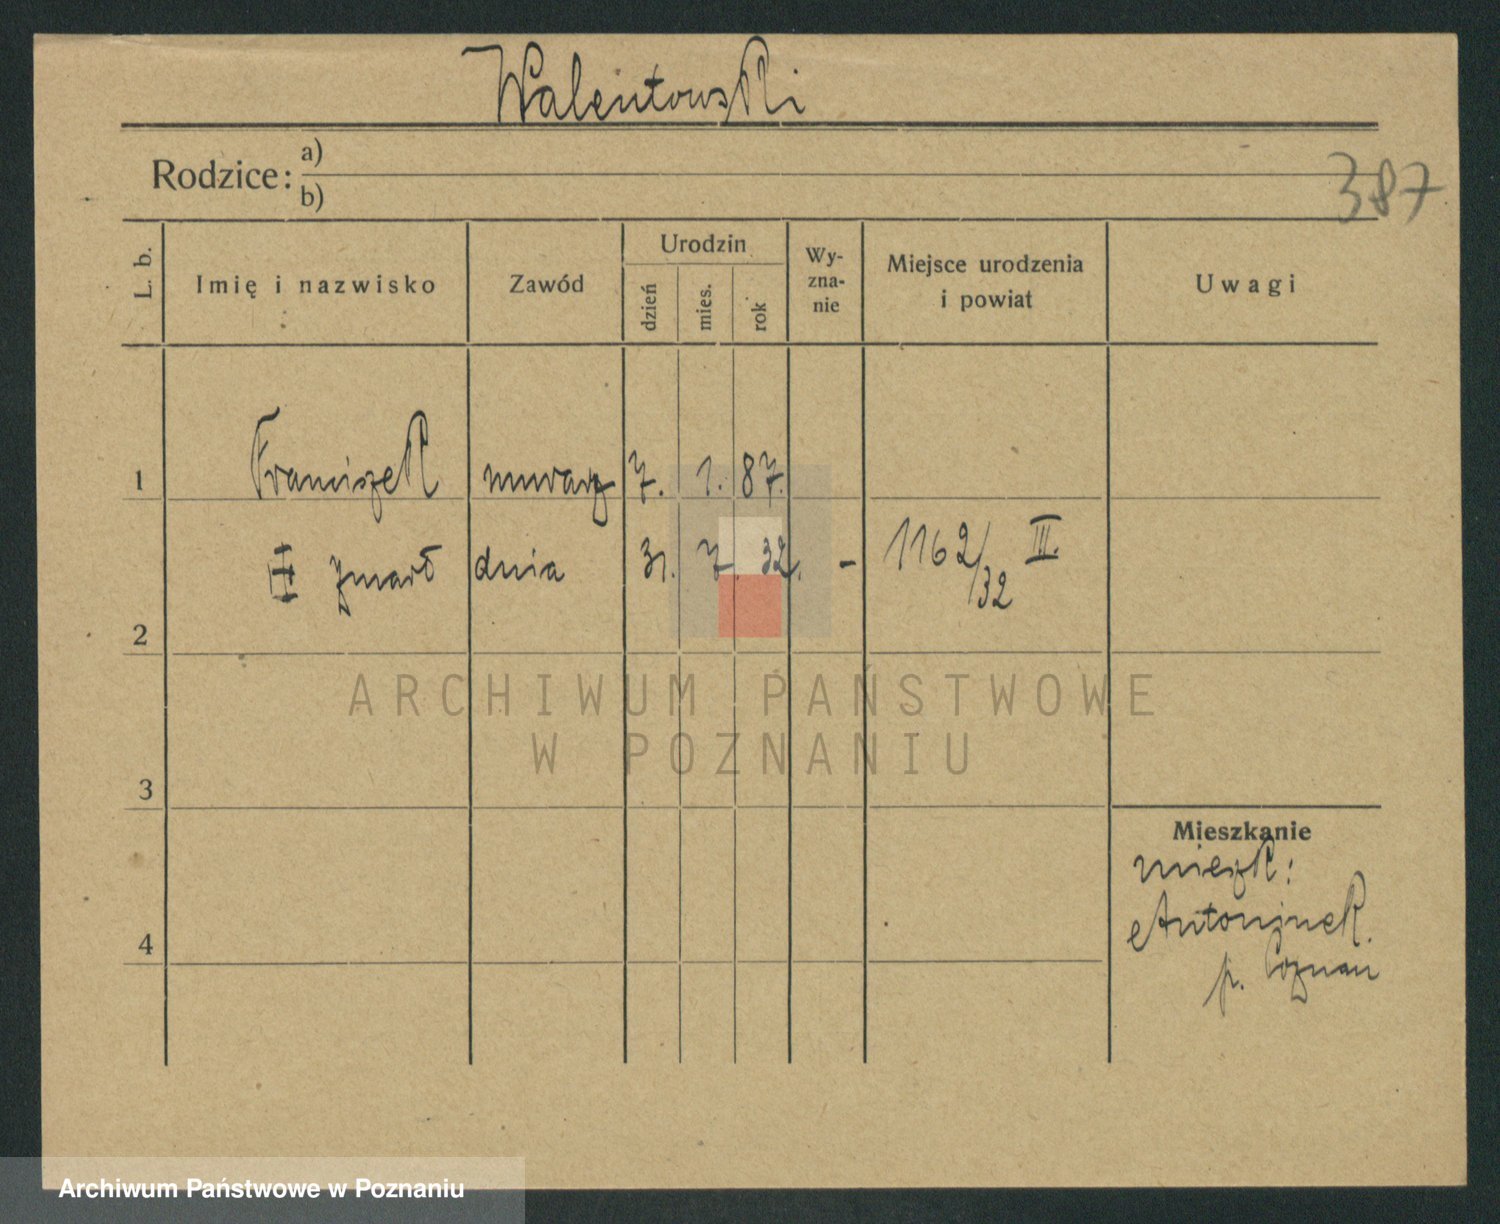 Walentowski
Rodzice: a)
b)
387
L. b. Imię i nazwisko Zawód Urodzin dzień mies. rok Wy-zna-nie Miejsce urodzenia i powiat Uwagi
1 Franciszek murarz 7. 1. 87.
zmarł dnia 31. 7. 32. - 1162/32 III.
2
ARCHIWUM PAŃSTWOWE
W POZNANIU
3
Mieszkanie
mieszk:
4 Antoninek
p. Poznań
Archiwum Państwowe w Poznaniu